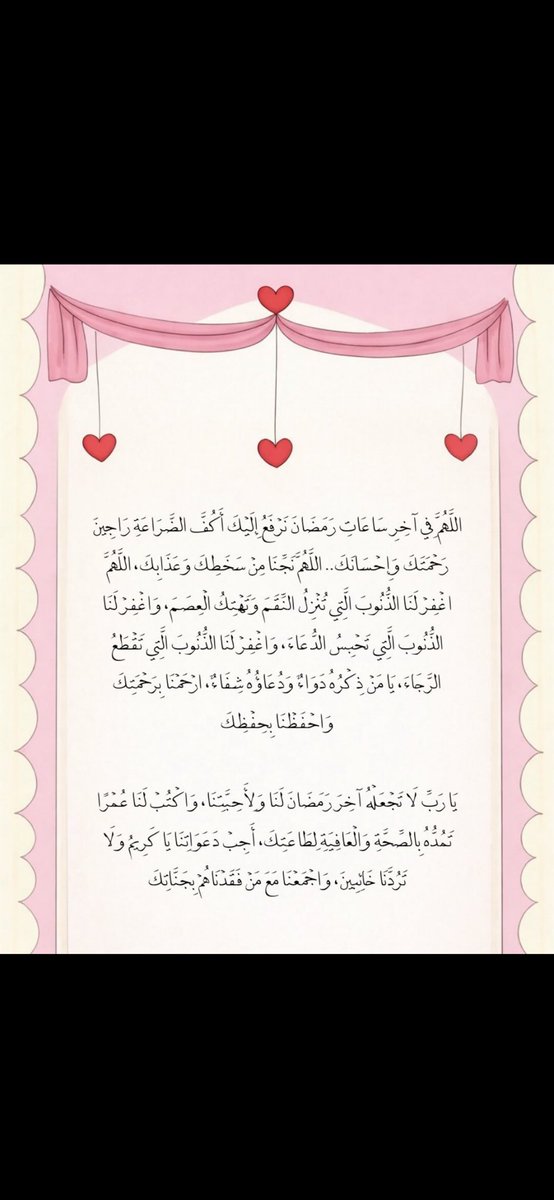 اللَّهُمَّ فِي آخِرِ سَاعَاتِ رَمَضَانَ نَرْفَعُ إِلَيْكَ أَكُفَّ الضَّرَاعَةِ رَاجِينَ
رَحْمَتَكَ وَإِحْسَانَكَ.. اللَّهُمَّ نَجِّنَا مِنْ سَخَطِكَ وَعَذَابِكَ، اللَّهُمَّ
اغْفِرْ لَنَا الذُّنُوبَ الَّتِي تُنْزِلُ النِّقَمَ وَتَهْتِكُ الْعِصَمَ، وَاغْفِرْ لَنَا
الذُّنُوبَ الَّتِي تَحْبِسُ الدُّعَاءَ، وَاغْفِرْ لَنَا الذُّنُوبَ الَّتِي تَقْطَعُ
الرَّجَاءَ، يَا مَنْ ذِكْرُهُ دَوَاءٌ وَدُعَاؤُهُ شِفَاءٌ، ارْحَمْنَا بِرَحْمَتِكَ
وَاحْفَظْنَا بِحِفْظِكَ
يَا رَبِّ لَا تَجْعَلْهُ آخِرَ رَمَضَانَ لَنَا وَلِأَحِبَّتِنَا، وَاكْتُبْ لَنَا عُمْرًا
تَمُدُّهُ بِالصِّحَّةِ وَالْعَافِيَةِ لِطَاعَتِكَ، أَجِبْ دَعَوَاتِنَا يَا كَرِيمُ وَلَا
تَرُدَّنَا خَائِبِينَ، وَاجْمَعْنَا مَعَ مَنْ فَقَدْنَاهُمْ بِجَنَّاتِكَ